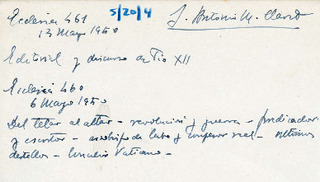 Ecclesia 461
5/20/4
S. Antonio M. Claret
13 Mayo 1950
Editorial y discurso de Pio XII
Ecclesia 460
6 Mayo 1950
Del telar al altar – revolución y guerra – fundador
y escritor – arzobispo de Cuba y confesor real – ultimos
destellos – Concilio Vaticano –